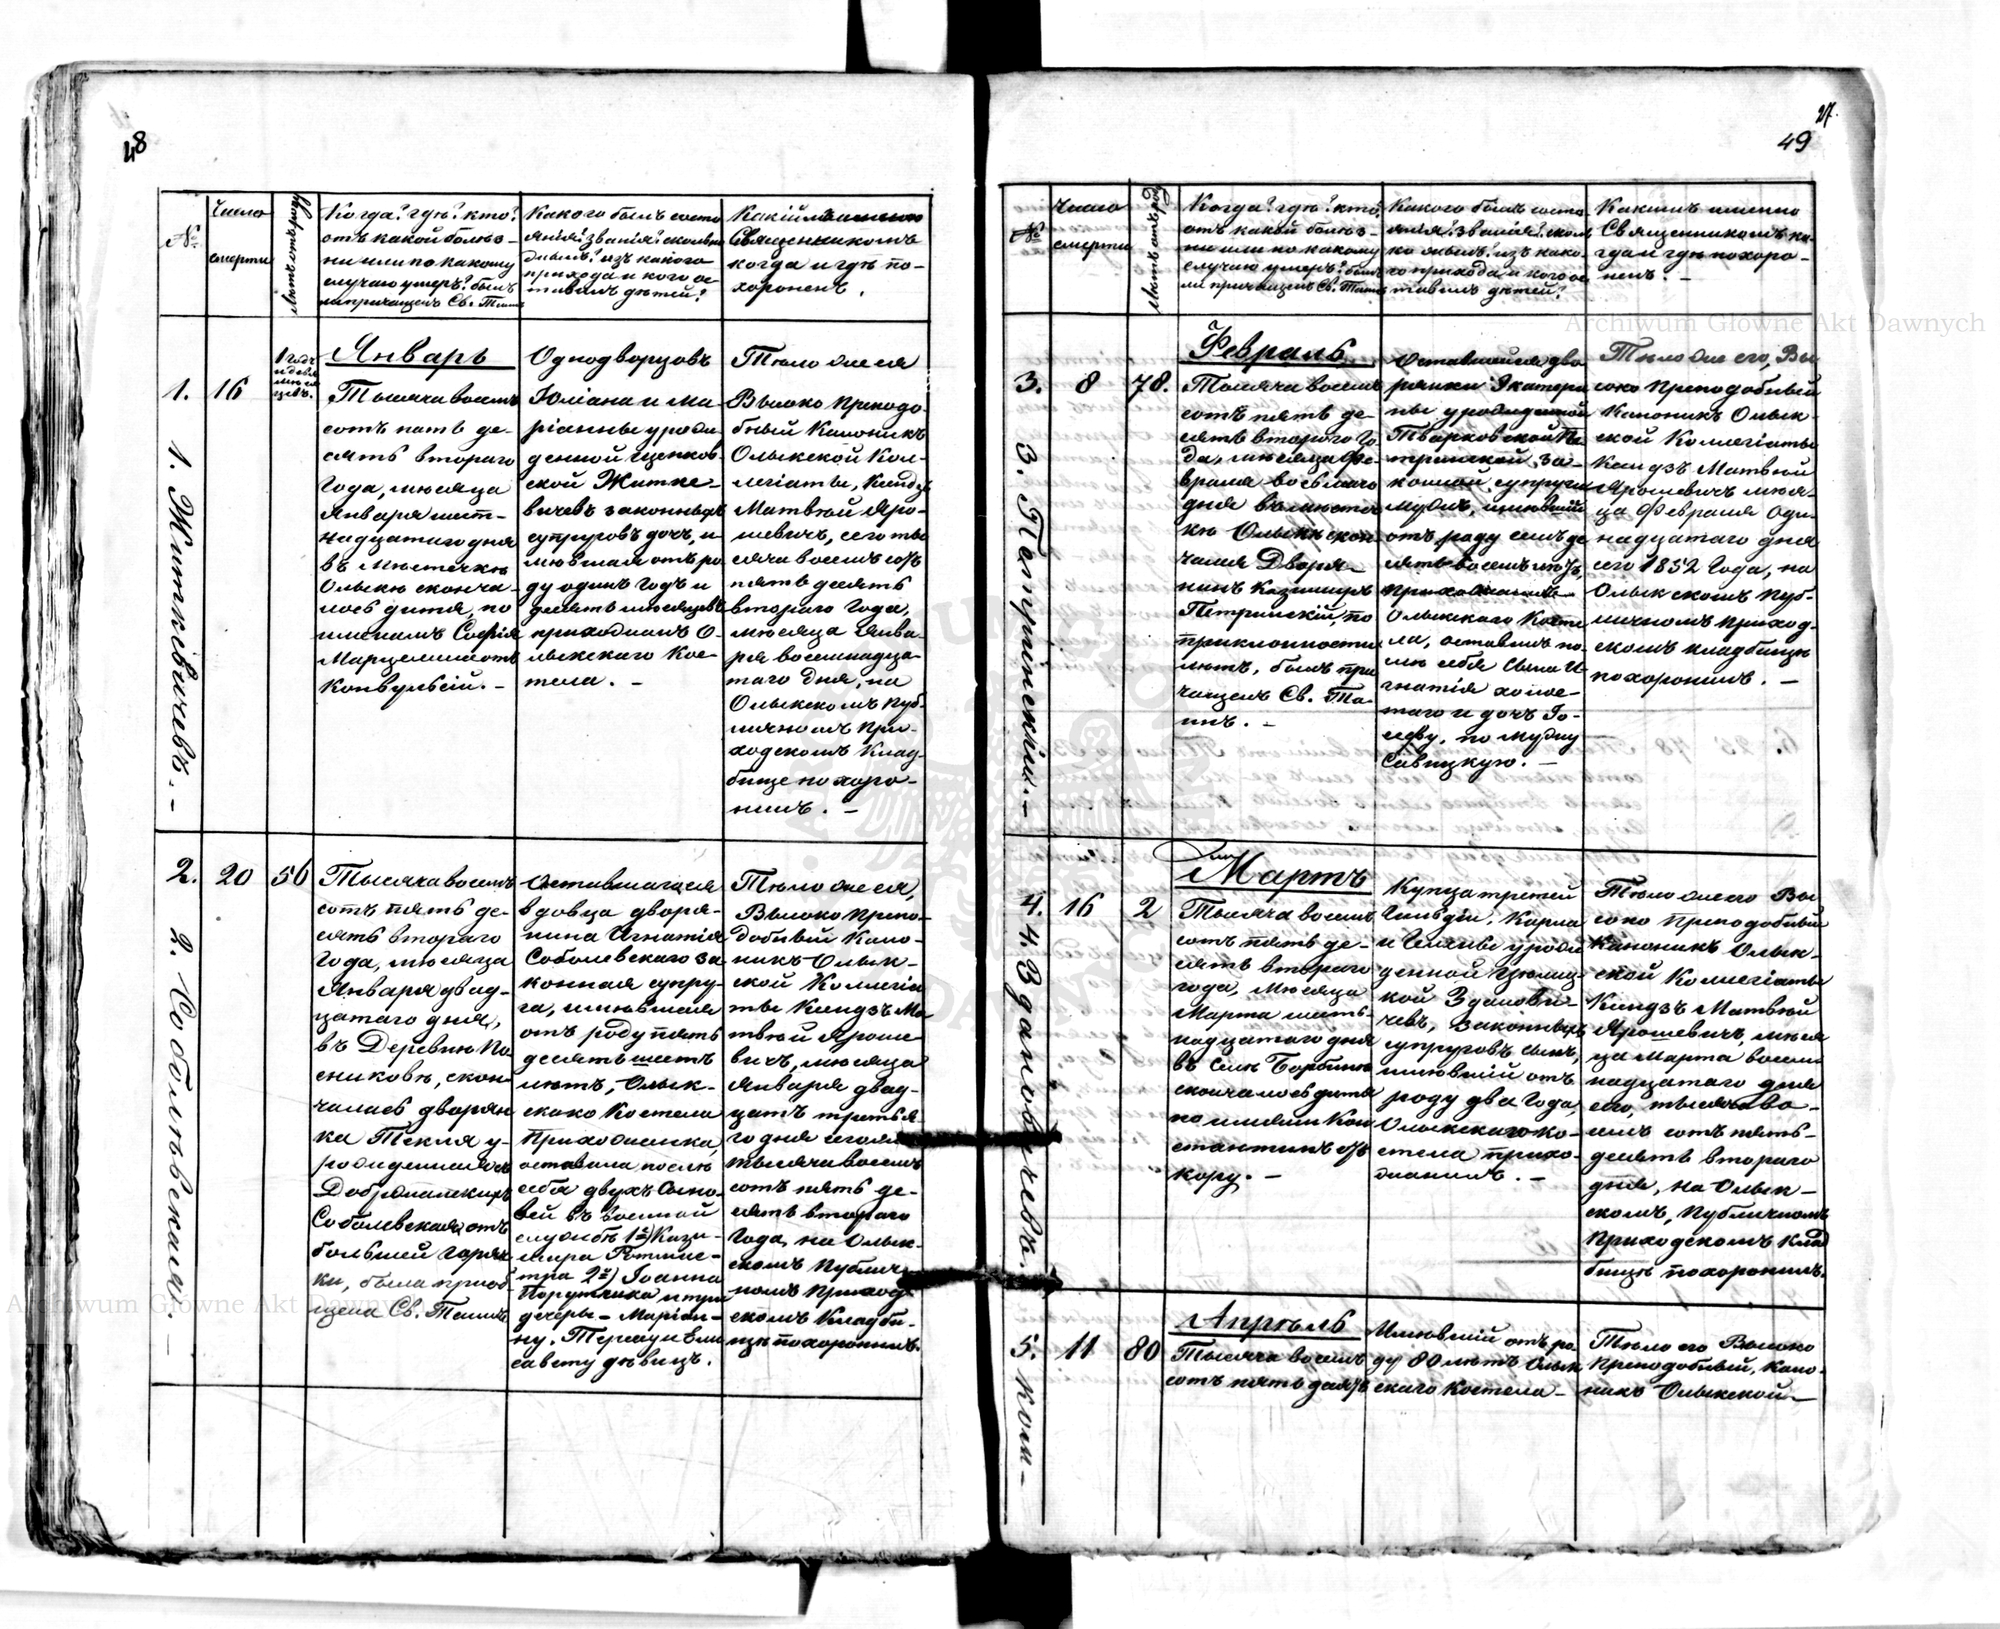 48
№
Число
смерти
Когда? гдѣ? кто?
отъ какой болѣз-
ни или по какому
случаю умеръ? былъ
ли причащенъ Св. Таинъ
Какого былъ состо
янія? званія? сколько
лѣтъ? изъ какого
прихода и кого ос-
тавилъ дѣтей?
Какимъ именно
Священникомъ
когда и гдѣ по-
хороненъ.
1.
16
1 годъ
и девя
мѣся
цевъ.
1. Житкевичевъ. -
Январь
Тысяча восемь
сотъ пять де-
сять втораго
Года, мѣсяца
Января шест-
надцатаго дня
въ Мѣстечкѣ
Олыкѣ сконча-
лось дитя, по
именамъ Софія
Марцелина отъ
Конвульсій. -
Однодворцовъ
Юліана и Ма-
ріанны урож-
денной
ской Житке-
вичевъ законныхъ
супруговъ дочь, и-
мѣвшая отъ ро
ду одинъ Годъ и
девять мѣсяцевъ
прихожанъ О-
лыкскаго Кос-
тела. -
Тѣло онея
Высоко Преподо-
бный Каноникъ
Олыкской Кол-
легіаты, Ксендзъ
Матвѣй Яро-
шевичъ, сего ты
сяча восемь сотъ
пять десять
втораго Года,
мѣсяца Янва-
ря восемнадца-
таго дня, на
Олыкскомъ Пуб-
личномъ При-
ходскомъ Клад-
бище похоро-
нилъ. -
2.
20
56
2. Соболевскихъ. -
Тысяча восемь
сотъ пять де-
сять втораго
Года, мѣсяца
Января двад-
цатаго дня,
въ Деревнѣ По
сниковѣ, скон-
чалась дворян
ка Текля у-
рожденная изъ
Добрянскихъ
Соболевская, отъ
большей горяч
ки, была приоб-
щена Св. Таинъ
Оставшагося
вдовца дворя-
нина Игнатія
Соболевскаго за
конная супру-
га, имѣвшая
отъ роду пять
десять шесть
лѣтъ, Олык-
скаго Костела
Прихожанка,
оставила послѣ
себя двухъ Сыно-
вей въ военной
службѣ 1й) Кази-
мира Ротмис-
тра 2й) Іоанна
Поручика и три
дочери - Маріан-
ну, Терезу и Ели
савету дѣвицъ.
Тѣло онея,
Высоко Препо-
добный Кано-
никъ Олык-
ской Коллегіа
ты Ксендзъ Ма-
твѣй Яроше
вичъ, мѣсяца
Января двад-
цать третья-
го дня сего
тысяча восемь
сотъ пять де-
сять втораго
Года, на Олык-
скомъ Публич-
номъ Приход-
скомъ Кладби-
щѣ похоронилъ.
27.
49
№
Число
смерти
Когда? гдѣ? кто,
отъ какой болѣз-
ни или по какому
случаю умеръ? былъ
ли причащенъ Св. Таинъ
Какого былъ состо
янія? званія? сколь
ко лѣтъ? изъ како-
го прихода и кого ос-
тавилъ дѣтей?
Какимъ именно
Священникомъ ко-
гда и гдѣ похоро-
ненъ. -
3.
8
78.
3. Петринскій. -
Февраль
Тысяча восемь
сотъ пять де-
сять втораго Го-
да, мѣсяца Фе-
враля восьмаго
дня въ мѣстеч
кѣ Олыкѣ скон
чался Дворя-
нинъ Казимиръ
Петринскій, по
приклонности
лѣтъ, былъ при
чащенъ Св. Та-
инъ. -
Оставшейся дво
рянки Экатери
ны урожденной
Тварковской Пе
тринской, за-
конной супруги
мужъ, имѣвшій
отъ роду семь де
сять восемь лѣтъ,
Прихожанинъ
Олыкскаго Косте
ла, оставилъ по-
слѣ себя сына И
гнатія холос-
таго и дочь Іо-
зефу, по мужу
Савицкую. -
Тѣло онаго, Вы
соко Преподобный
Каноникъ Олык-
ской Коллегіаты
Ксендзъ Матвѣй
Ярошевичъ мѣся-
ца Февраля оди-
надцатаго дня
сего 1852 Года, на
Олыкскомъ Пуб-
личномъ приход-
скомъ кладбищѣ
похоронилъ. -
4.
16
2
4. Здановичевъ. -
Мартъ
Тысяча восемь
сотъ пять де-
сять втораго
года, Мѣсяца
Марта шест-
надцатаго дня
въ Селѣ
скончалось дитя
по имяни Кон
стантинъ отъ
кору. -
Купца третей
Гильдіи, Карла
и урож
денной
кой Здановы-
чевъ, Законныхъ
супруговъ сынъ,
имѣвшій отъ
роду два Года,
Олыкскаго ко-
стела прихо-
жанинъ. -
Тѣло онаго Вы
соко Преподобный
Каноникъ Олык-
ской Коллегіаты
Ксендзъ Матвѣй
Ярошевичъ, мѣся
ца Марта восем
надцатаго дня
сего, тысяча во-
семь сотъ пять-
десять втораго
дня, на Олык-
скомъ, Публичномъ
Приходскомъ Клад
бищѣ похоронилъ.
5.
11
80
5. Ком-
Апрѣль
Тысяча восемь
сотъ пять десять
Имѣвшій отъ ро
ду 80 лѣтъ Олык
скаго Костела-
Тѣло его Высоко
Преподобный, Кано-
никъ Олыкской-
Archiwum Główne Akt Dawnych
Archiwum Główne Akt Dawnych